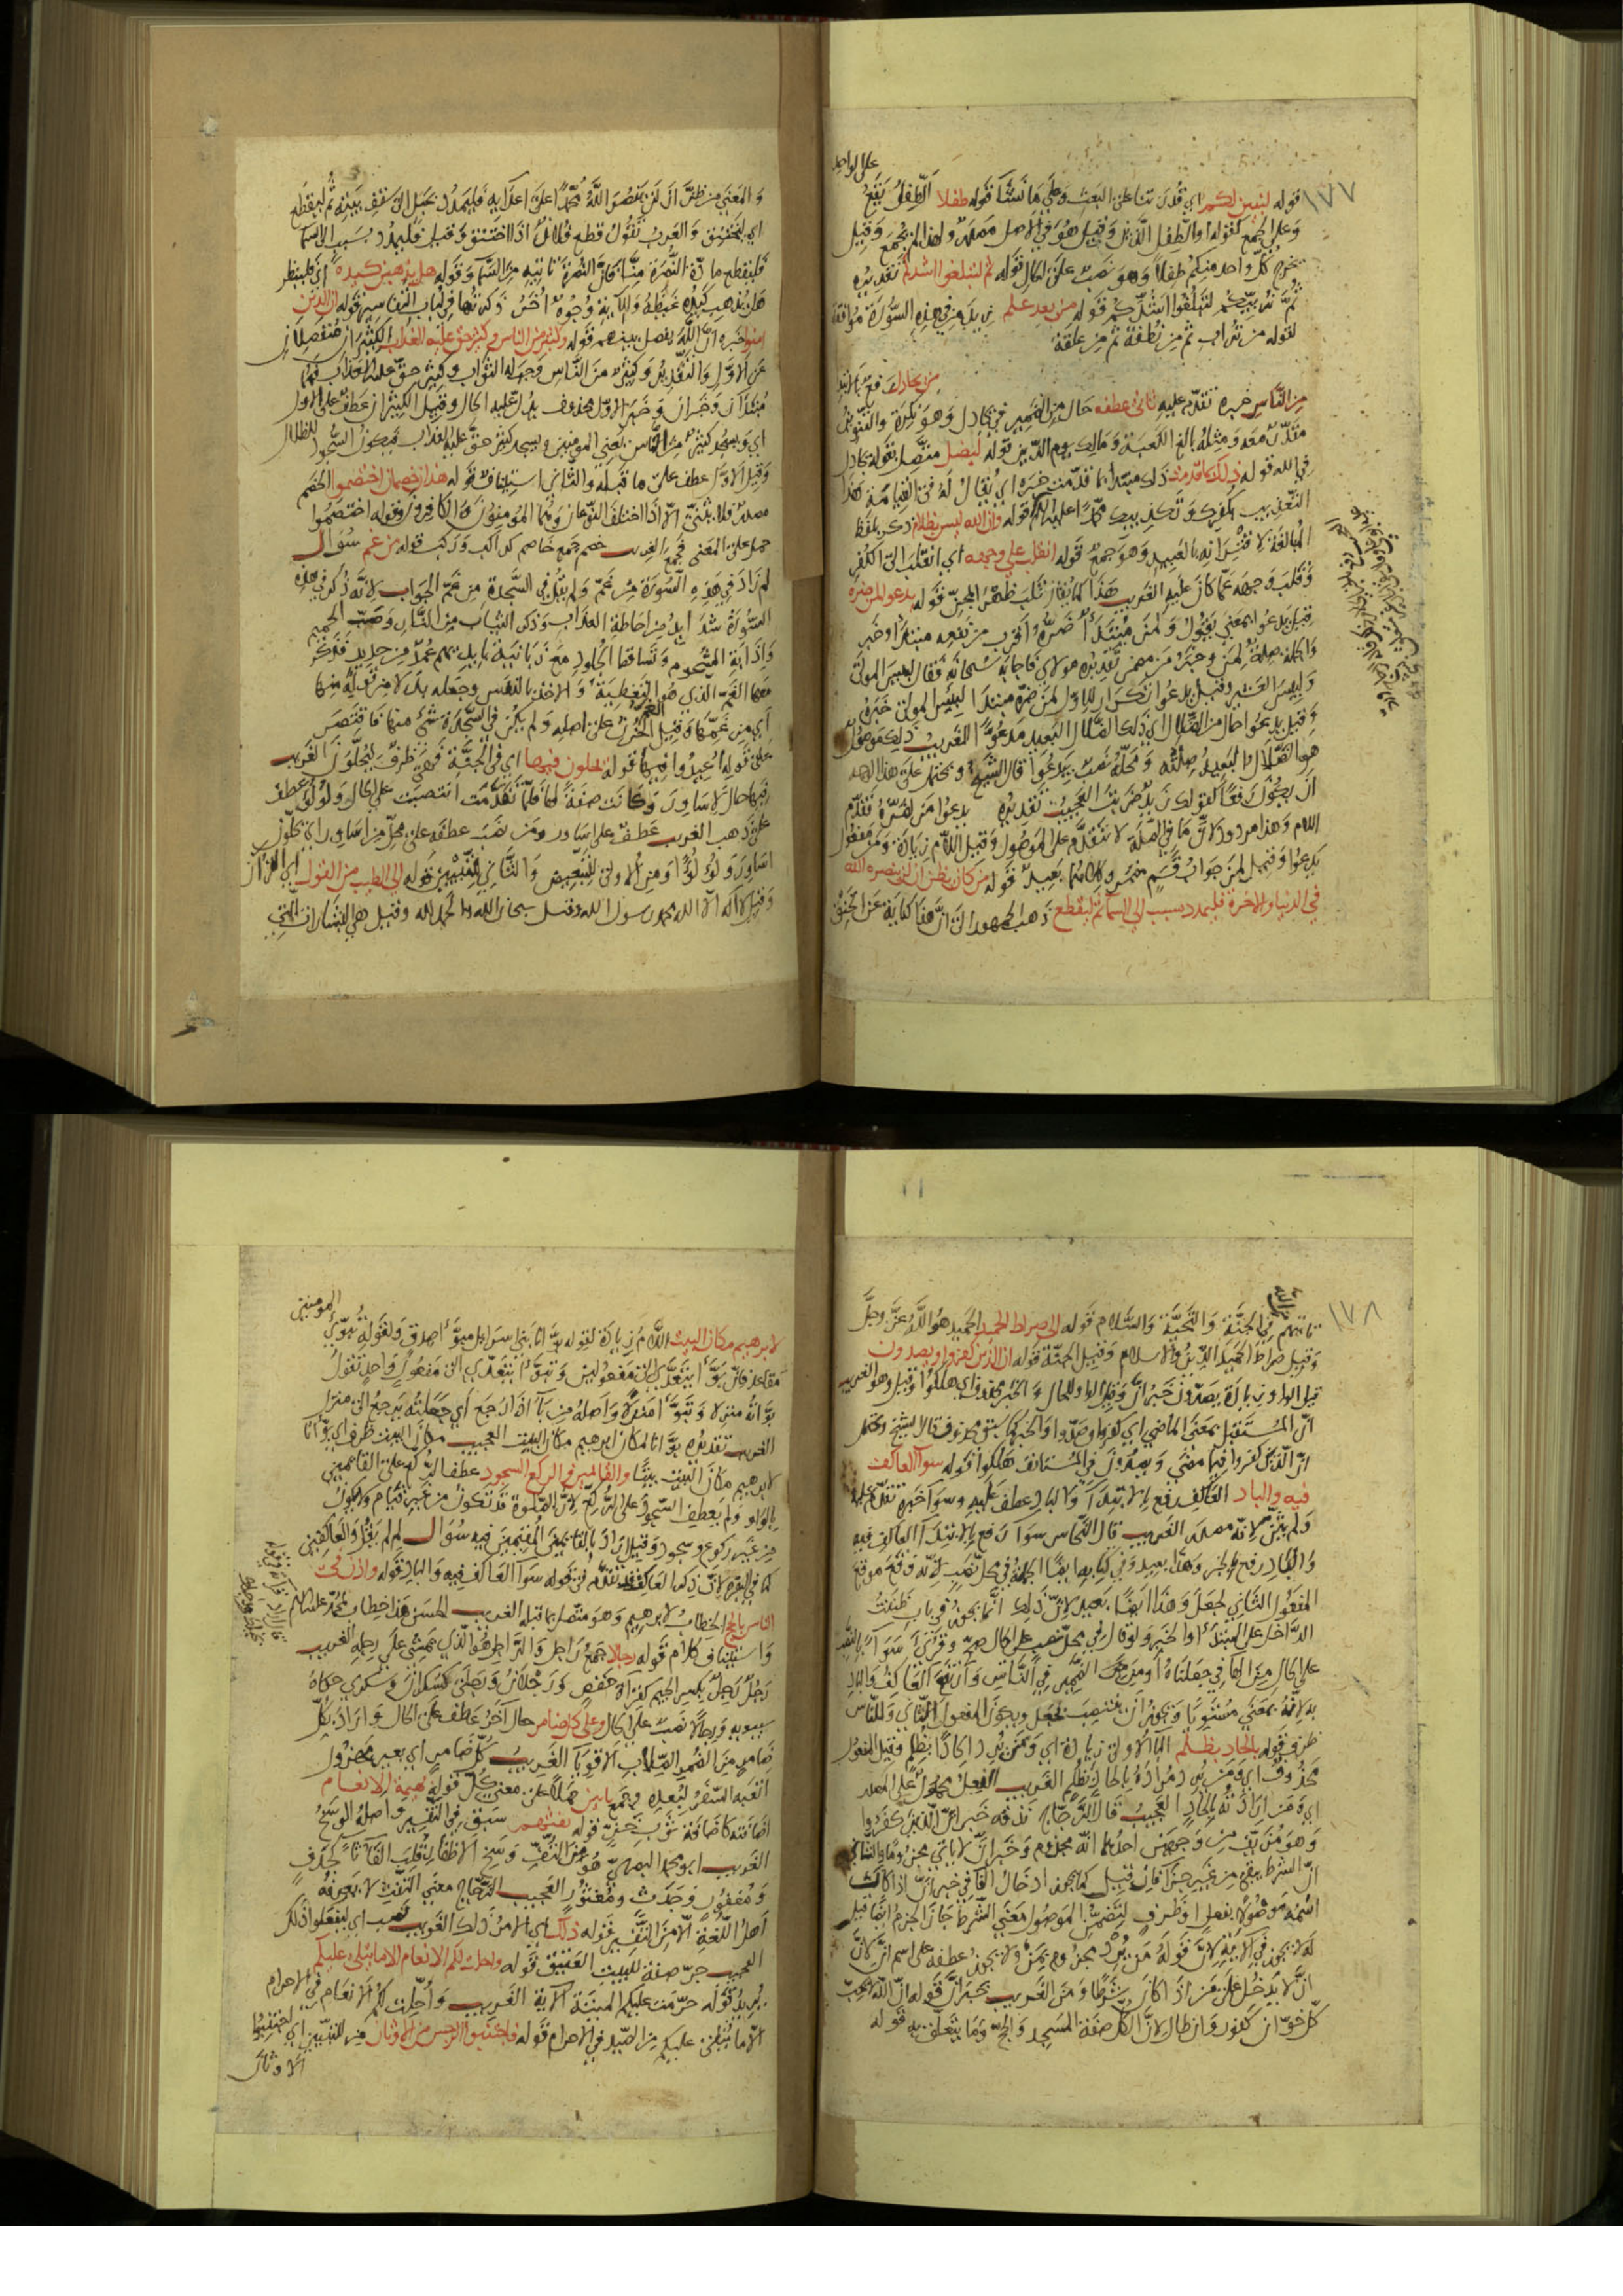 على الواحد
١٧٧
قوله لنبين لكم اي قدرتنا على البعث وعلى ما نشا قوله طفلا الطفل يقع
وعلى الجمع كقوله او الطفل الذين وقيل هو في الاصل مصدر ولهذا لم يجمع وقيل
نخرج كل واحد منكم طفلا وهو نصب على الحال قوله ثم لتبلغوا اشدكم تقديره
ثم نربيكم لتبلغوا اشدكم قوله من بعد علم زيد من في هذه السورة موافقة
لقوله من تراب ثم من نطفة ثم من علقة
من يجادل رفع بالابتدا
من الناس خبره تقدم عليه ثاني عطفه حال من الضمير في يجادل وهو نكرة والتنوين
مقدر معه ومثله بالغ الكعبة ومالك يوم الدين قوله ليضل متصل بقوله يجادل
في الله قوله ذلك بما قدمت ذلك مبتدا بما قدمت خبره اي يقال له في القيامة هذا
التعذيب بكفرك وتكذيبك محمدا عليه السلام قوله وان الله ليس بظلام ذكر بلفظ
المبالغة لاقترانه بالعبيد وهو جمع قوله انقلب على وجهه اي انقلب الى الكفر
وقلب وجهه عما كان عليه الغريب هذا كما يقال قلب ظهر المجن قوله يدعو لمن ضره
قيل يدعوا بمعنى يقول ولمن مبتدأ ضره واقرب من نفعه مبتدا وخبر
والجملة صلة لمن وخبر من مضمر تقديره مولاي فاجابه سبحانه فقال لبيس المولى
ولبيس العشير وقيل يدعوا تكرار للاول لمن ضره مبتدا لبيس المولى خبره
وقيل يدعوا حال من الضلال اي ذلك الضلال البعيد مدعوا الغريب ذلك هو
هو الضلال البعيد صلته ومحله نصب بيدعوا قال الشيخ ويحتمل على هذا
ان يكون رفعا كقولك زيد ضربت العجيب تقديره يدعوا من لضره تقدم
اللام وهذا مردود لان ما في الصلة لا يتقدم على الموصول وقيل اللام زيادة ومن مفعول
يدعوا وقيل لمن جواب قسم مضمر وكلاهما بعيد قوله من كان يظن ان لن ينصره الله
في الدنيا والاخرة فليمدد بسبب الى السماء ثم ليقطع ذهب الجمهور الى ان هنا كناية عن الخنق
والمعنى من ظن ان لن ينصر الله محمدا على اعدايه فليمدد بحبل الى سقف بيته ثم ليقطع
اي ليختنق والعرب تقول قطع فلان اذا اختنق وقيل فليمدد بسبب الى السما
فليقطع مادة النصرة منا فان النصرة تاتيه من السما وقوله هل يذهبن كيده اي فلينظر
هل يذهب كيده غيظه وللآية وجوه اخر ذكرتها في لباب التفاسير قوله ان الذين
امنوا خبره ان الله يفصل بينهم قوله وكثير من الناس وكثير حق عليه العذاب الكثيران منفصلان
عن الاول والتقدير وكثير من الناس وجب له الثواب وكثير حق عليه العذاب فهما
مبتدآن وخبران وخبر الاول محذوف يدل عليه الحال وقيل الكثيران عطف على الاول
اي ويسجد كثير من الناس يعني المومنين ويسجد كثير حق عليه العذاب فيكون السجود للظلال
وقيل الاول عطف على ما قبله والثاني استيناف قوله هذان خصمان اختصموا الخصم
مصدر فلا يثنى الا اذا اختلف النوعان وهما المومنون والكافرون وقوله اختصموا
حمل على المعنى فجمع الغريب خصم جمع خاصم كراكب وركب قوله من غم سؤال
لم زاد في هذه السورة من غم ولم يقل في السجدة من غم الجواب لانه ذكر في هذه
السورة شدايد من احاطة العذاب وذكر الثياب من النار وصب الحميم
واذابة الشحوم وتساقط الجلود مع زبانية بايديهم عمد من حديد فذكر
معها الغم الذي هو التغطية والاخذ بالنفس وجعله بدلا من قوله منها
اي من غمها وقيل الغم الحزن على اصله ولم يكن في السجدة شي منها فاقتصر
على قوله اعيدوا فيها قوله يحلون فيها اي في الجنة فهي ظرف ليحلون الغريب
فيها حال لاساور وكانت صفة لها فلما تقدمت انتصبت على الحال ولؤلؤ عطف
على ذهب الغريب عطف على اساور ومن نصب عطفه على محل من اساور اي يحلون
اساور ولؤلؤا ومن الاولى للتبعيض والثاني للتبيين قوله الى الطيب من القول اي القرآن
وقيل لا اله الا الله محمد رسول الله وقيل سبحان الله والحمد لله وقيل هي البشارات التي
١٧٨
تاتيهم في الجنة والتحية والسلام قوله الى صراط الحميد الحميد هو الله عز وجل
وقيل صراط الحميد الدين والاسلام وقيل الجنة قوله ان الذين كفروا ويصدون
قيل الواو زيادة يصدون خبر ان وقيل الواو للحال والخبر محذوف اي هلكوا وقيل وهو الغريب
ان المستقبل بمعنى الماضي اي كفروا وصدوا والخبر كما سبق محذوف قال الشيخ ويحتمل
ان الذين كفروا فيما مضى ويصدون في المستانف هلكوا قوله سوآ العاكف
فيه والباد العاكف رفع بالابتدآ والباد عطف عليه وسوآ خبره تقدم عليه
ولم يثن لانه مصدر الغريب قال النحاس سوآ رفع بالابتدآ العاكف فيه
والباد رفع بالخبر وهذا بعيد وفي كتابه ايضا الجملة في محل نصب لانه وقع موقع
المفعول الثاني لجعل وهذا ايضا بعيد لان ذلك انما يجوز في باب ظننت
الداخل على المبتدأ والخبر ولو قال في محل نصب على الحال صح وقرئ سوآ بالنصب
على الحال من الها في جعلناه او من الضمير في الناس وارتفع العاكف والباد
به لانه بمعنى مستويا ويجوز ان ينتصب بجعل ويكون المفعول الثاني وللناس
ظرف قوله بالحاد بظلم البا الاولى زيادة اي ومن يرد الحادا بظلم وقيل المفعول
محذوف اي ومن يرد مراده بالحاد بظلم الغريب الفعل محمول على المصدر
اي ومن ارادته بالحاد العجيب قال الزجاج نذقه خبر ان الذين كفروا
وهو مزيف من وجهين احدهما انه مجزوم وخبر ان لا ياتي مجزوما والثاني
ان الشرط يبقى من غير جزا فان قيل كما يجوز ادخال الفا في خبر ان اذا كان
اسمه موصولا بفعل او ظرف لتضمن الموصول معنى الشرط جاز الجزم ايضا قيل
له لا يجوز في الاية لان قوله من يرد مجزوم بمن ولا يجوز عطفه على اسم ان لان
ان لا يدخل على من اذا كان شرطا ومن الغريب خبر ان قوله ان الله لا يحب
كل خوان كفور وان طال لان الكل صفة المسجد والحج وما يتعلق به قوله
المومنين
لابرهيم مكان البيت اللام زيادة لقوله بوانا بني اسرايل مبوأ صدق ولقوله تبوئ
مقاعد فان بوأ يتعدى الى مفعولين وتبوأ يتعدى الى مفعول واحد تقول
بوأته منزلا وتبوأ منزلا واصله من باء اذا رجع اي جعلته يرجع الى منزل
الغريب تقديره بوانا لمكان ابرهيم مكان البيت العجيب مكان البيت ظرف اي بوانا
لابرهيم مكان البيت بيتا والقائمين والركع السجود عطف الركع على القائمين
بالواو ولم يعطف السجود على الركع لان الصلوة قد تكون من غير قيام ولا يكون
من غير ركوع وسجود وقيل اراد بالقائمين المقيمين فيه سؤال لم لم يقل والعاكفين
كما في البقرة لان ذكر العاكف قد تقدم في قوله سوآ العاكف فيه والباد قوله واذن في
الناس بالحج الخطاب لابرهيم وهو متصل بما قبله الغريب الحسن هذا خطاب محمد عليه السلم
واستيناف كلام قوله رجالا جمع راجل والراجل هو الذي يمشي على رجله الغريب
رجل رجل بكسر الجيم كقراة حفص ورجلان ورجلى كسكران وسكرى حكاه
سيبويه ورجالا نصب على الحال وعلى كل ضامر حال آخر عطف على الحال واراد بكل
ضامر من الضمر الصلاب الاقويآ الغريب كل ضامر اي بعير مهزول
اتعبه السفر لبعده وجمع ياتين حملا على معنى كل قوله بهيمة الانعام
اضافته كاضافة ثوب خز قوله تفثهم سبق في التفسير واصله الوسخ
الغريب ابو محمد البصري هو من التف وسخ الاظفار قلبت الفآ ثاء كجدف
ومغفور وجدث ومغثور العجيب الزجاج معنى التفث لا يعرفه
اهل اللغة الا من التفسير قوله ذلك اي الامر ذلك الغريب نصب اي ليفعلوا ذلك
العجيب جر صفة للبيت العتيق قوله واحلت لكم الانعام الا ما يتلى عليكم
يريد قوله حرمت عليكم الميتة الآية الغريب واحلت لكم الانعام في الاحرام
الا ما يتلى عليكم من الصيد في الاحرام قوله فاجتنبوا الرجس من الاوثان من للتبيين اي اجتنبوا
الاوثان